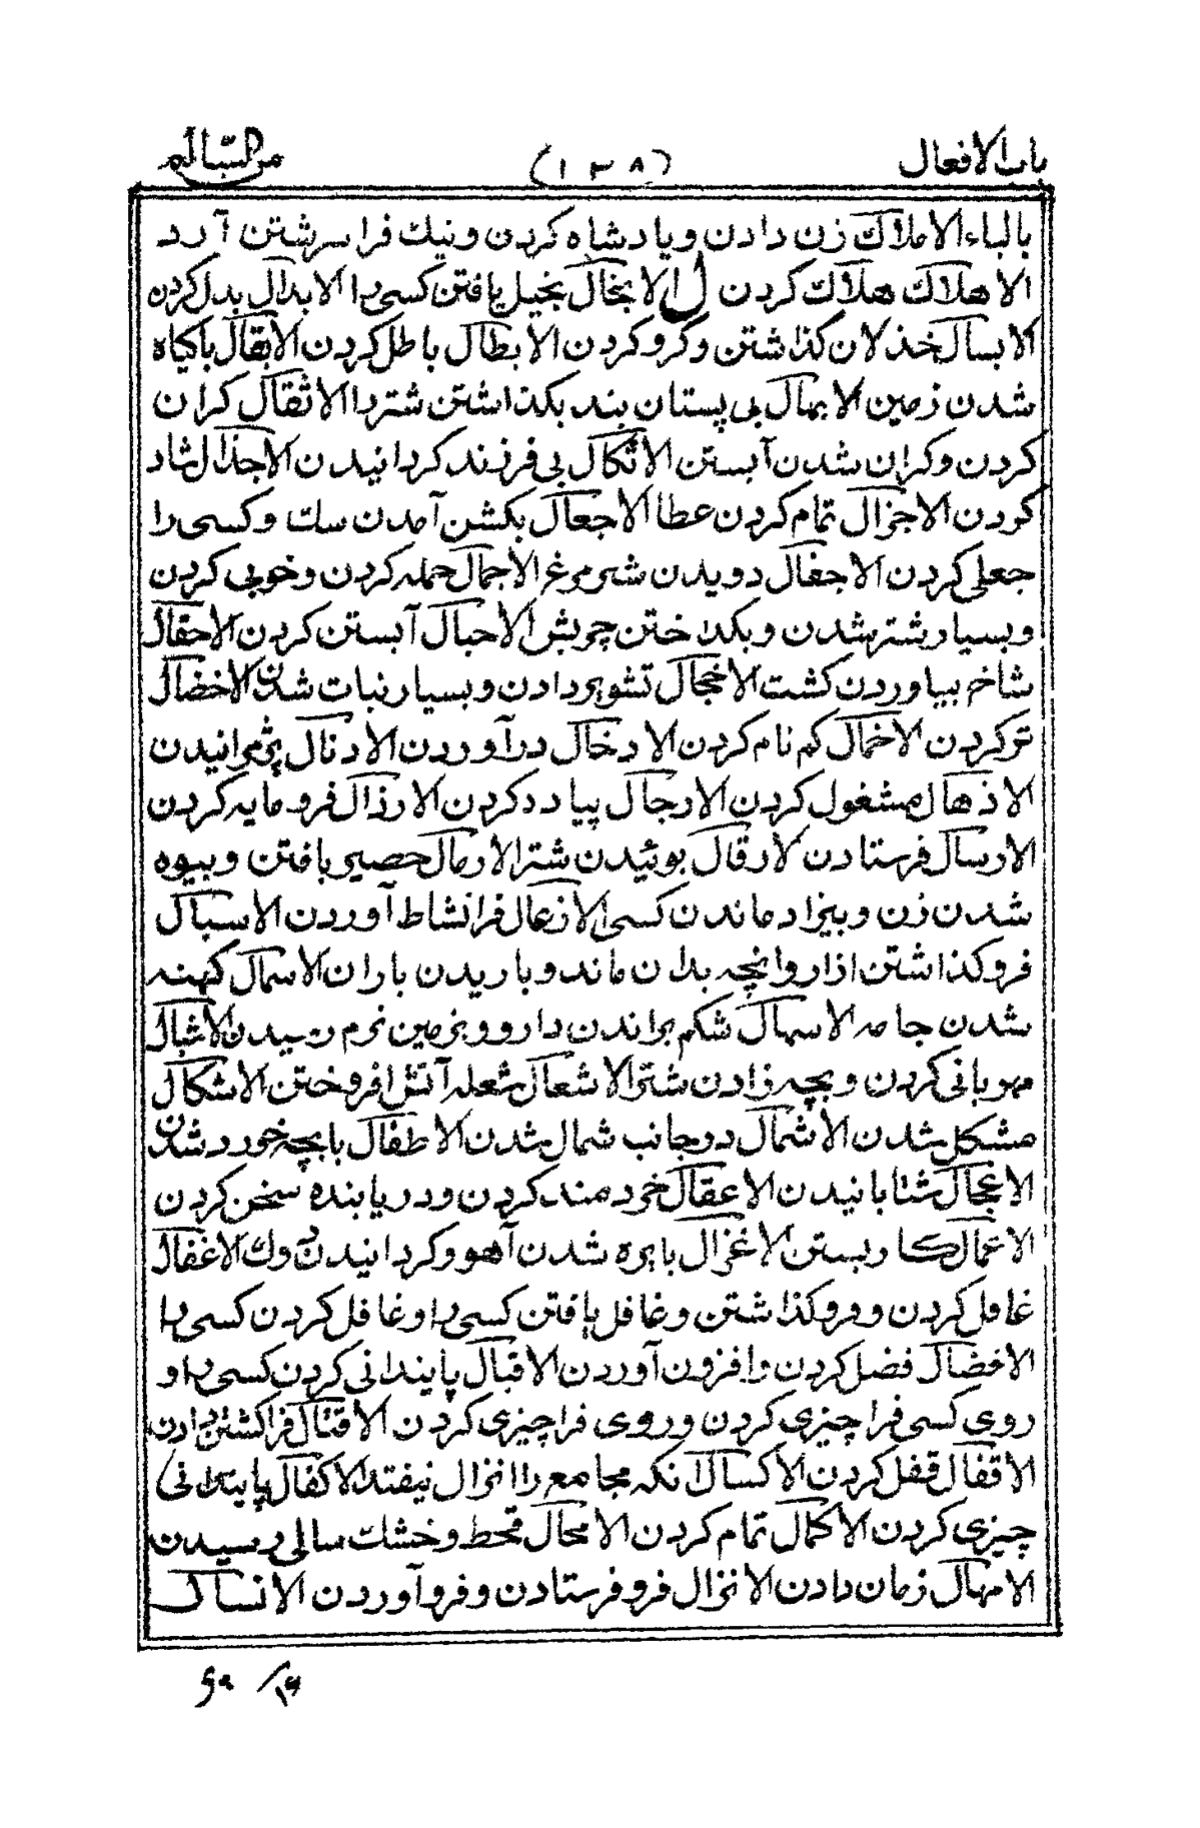 باب الافعال (۱۳۸) من السّالم
بالباء الاملاك زن دادن و پادشاه كردن و نيك فرا سرشتن آرد
الاهلاك هلاك كردن ل الابخال بخيل يافتن كسى را الابدال بدل كردن
الابسال خذلان كذاشتن و كرو كردن الابطال باطل كردن الابقال باكياه
شدن زمين الابهال بى پستان بند بكذاشتن شتر را الاثقال كران
كردن و كران شدن آبستن الاثكال بى فرزند كردانيدن الاجذال شاد
كردن الاجزال تمام كردن عطا الاجعال بكشن آمدن سك و كسى را
جعلى كردن الاجفال دويدن شتر مرغ الاجمال جمله كردن و خوبى كردن
و بسيار شتر شدن و بكداختن چربش الاحبال آبستن كردن الاحقال
شاخ بياوردن كشت الاخجال تشوير دادن و بسيار نبات شدن الاخضال
تر كردن الاخمال كم نام كردن الادخال درآوردن الادنال پژمرانيدن
الاذهال مشغول كردن الارجال پياده كردن الارذال فرومايه كردن
الارسال فرستادن الارقال پوئيدن شتر الارمال حصير بافتن و بيوه
شدن زن و بيزاد ماندن كسى الازعال فرا نشاط آوردن الاسبال
فرو كذاشتن ازار وانچه بدان ماند و باريدن باران الاسمال كهنه
شدن جامه الاسهال شكم براندن دارو و بزمين نرم رسيدن الاشبال
مهربانى كردن و بچه زادن شتر الاشعال شعله آتش افروختن الاشكال
مشكل شدن الاشمال در جانب شمال شدن الاطفال با بچه خورد شدن
الاعجال شتابانيدن الاعقال خردمند كردن و دريابنده سخن كردن
الاعمال كار بستن الاغزال با بره شدن آهو و كردانيدن دوك الاغفال
غافل كردن و فرو كذاشتن و غافل يافتن كسى را و غافل كردن كسى را
الافضال فضل كردن و افزون آوردن الاقبال پايندانى كردن كسى را و
روى كسى فرا چيزى كردن و روى فرا چيزى كردن الاقتال فرا كشتن دادن
الاقفال قفل كردن الاكسال انكه مجامع را انزال نيفتد الاكفال پايندانى
چيزى كردن الاكمال تمام كردن الامحال قحط و خشك سالى رسيدن
الامهال زمان دادن الانزال فرو فرستادن و فرو آوردن الانسال